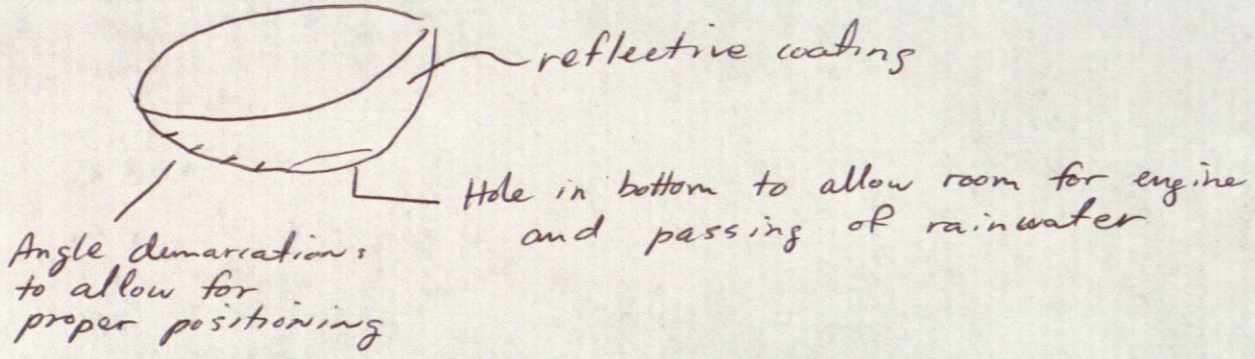 reflective coating
Hole in bottom to allow room for engine
and passing of rainwater
Angle demarcations
to allow for
proper positioning